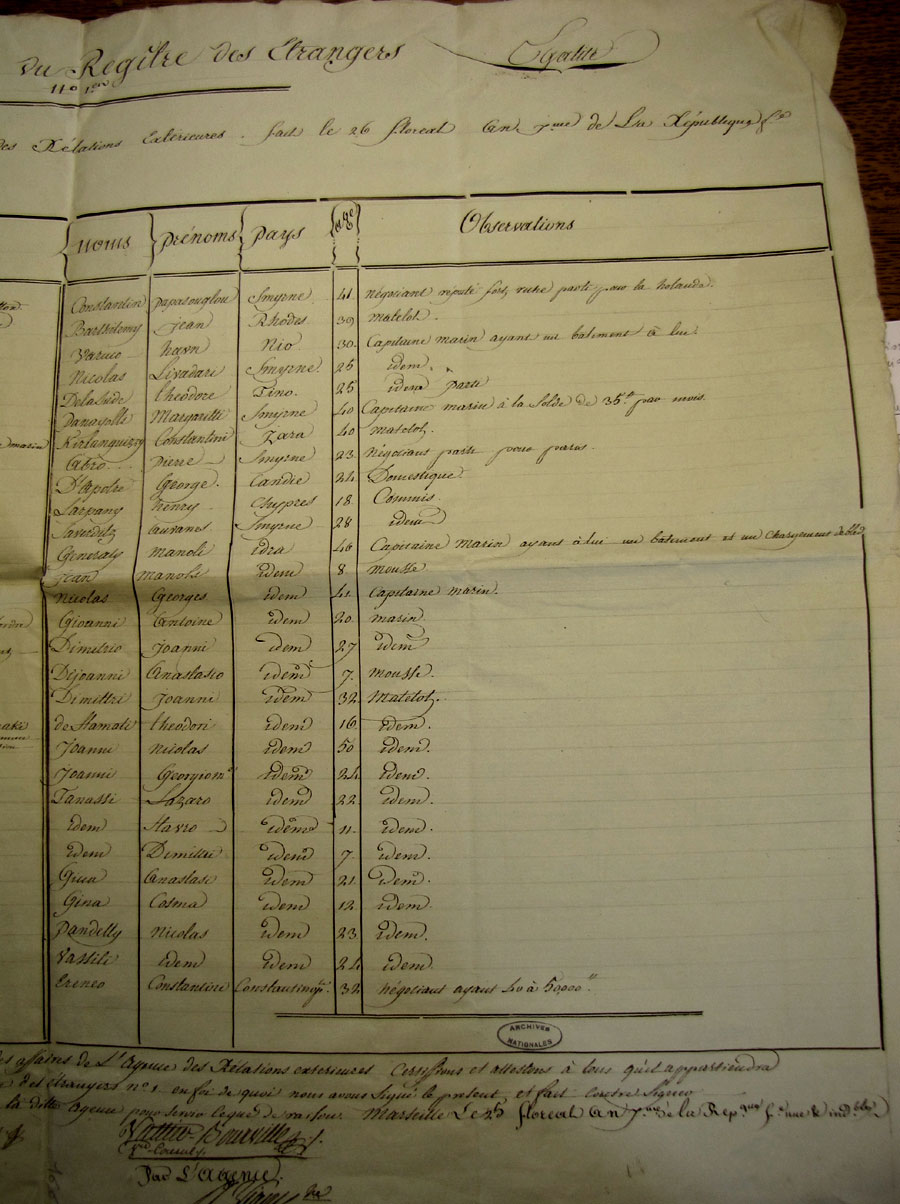 du Regître des Etrangers Egalité
n° 1er
des Rélations Extérieures. fait le 26 floreal an 7me de La République fse
noms prénoms pays age Observations
Constantin papasouglou Smyrne 41 négociant réputé fort riche parti pour la holande
Bartholomy jean Rhodes 39 matelot.
Nio 30 Capitaine marin ayant un bâtiment à lui
Nicolas Livadari Smyrne 25 idem
théodore Tino 25 idem parti
Panayotte Margaritti Smyrne 40 Capitaine marin à la solde de 35lt par mois
Constantini Zara 40 matelot.
Abro pierre Smyrne 23 négociant parti pour paris
D'apolte George Candie 24 Domestique
Larpany henry Chypres 18 Commis
Smyrne 28 idem
Generaly manoli idra 46 Capitaine marin ayant à lui un bâtiment et un chargement de bled
jean manoli idem 8 mousse
Nicolas Georges idem 41 Capitaine marin.
Giovanni Antoine idem 20 marin
Dimitrio Joanni idem 27 idem
Dejoanni Anastasio idem 7 mousse.
Dimittri Joanni idem 32 Matelot.
de Stamati théodori idem 16 idem.
Joanni Nicolas idem 50 idem.
Joanni idem 24 idem.
Tanassi Lazaro idem 22 idem.
idem Stavro idem 11 idem.
idem Demittri idem 7 idem.
Anastasi idem 21 idem.
Gina Cosma idem 12 idem.
pandelly Nicolas idem 23 idem.
Vassili idem idem 24 idem.
Ereneo Constantini Constantinople 32 négociant ayant 40 à 50,000lt
ARCHIVES
NATIONALES
affaires de L'Agence des Rélations exterieures Certifions et attestons à tous qu'il appartiendra
des étrangers n° 1 en foi de quoi nous avons signé le présent, et fait contre signer
la ditte agence pour servir ce que de raison. Marseille Le 26 floreal an 7me de la Repque fse une & indble
Bourville
Par L'Agence